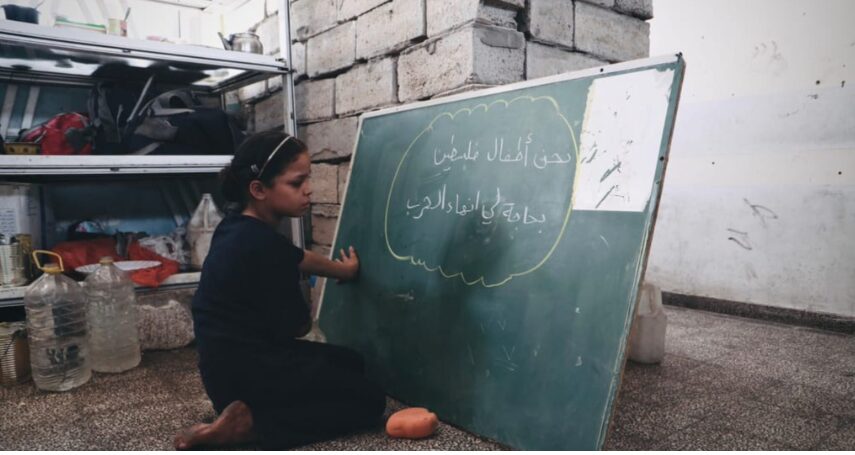 نحن أطفال فلسطين
بحاجة إلى انهاء الحرب